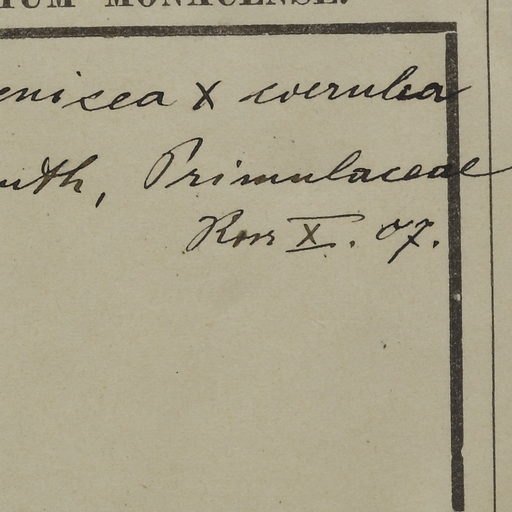 IUM MONACENSE.
enicea x coerulea
uth, Primulaceae
Ross X. 07.